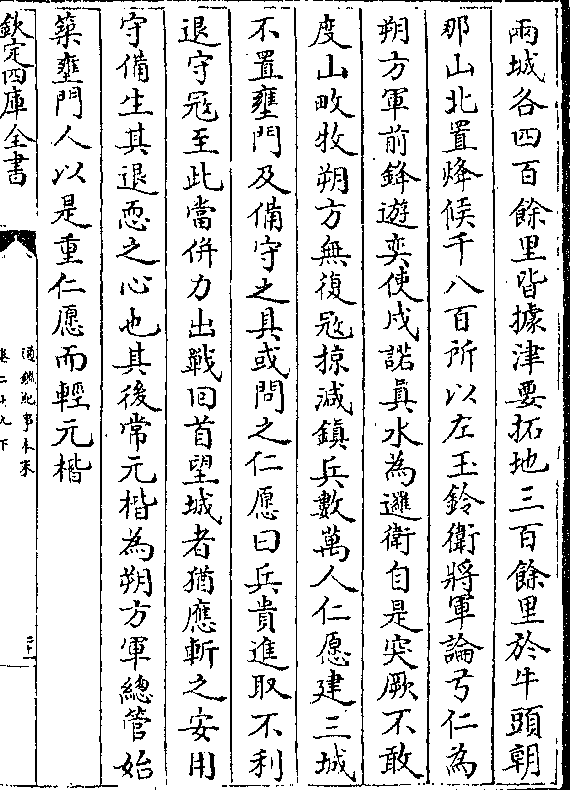 兩城各四百餘里皆據津要拓地三百餘里於牛頭朝
那山北置烽候千八百所以左玉鈐衛將軍論弓仁為
朔方軍前鋒遊奕使戍諾真水為邏衛自是突厥不敢
度山畋牧朔方無復寇掠減鎮兵數萬人仁愿建三城
不置壅門及備守之具或問之仁愿曰兵貴進取不利
退守寇至此當併力出戰回首望城者猶應斬之安用
守備生其退恧之心也其後常元楷為朔方軍總管始
築壅門人以是重仁愿而輕元楷
欽定四庫全書
通鑑紀事本末
卷二十九下